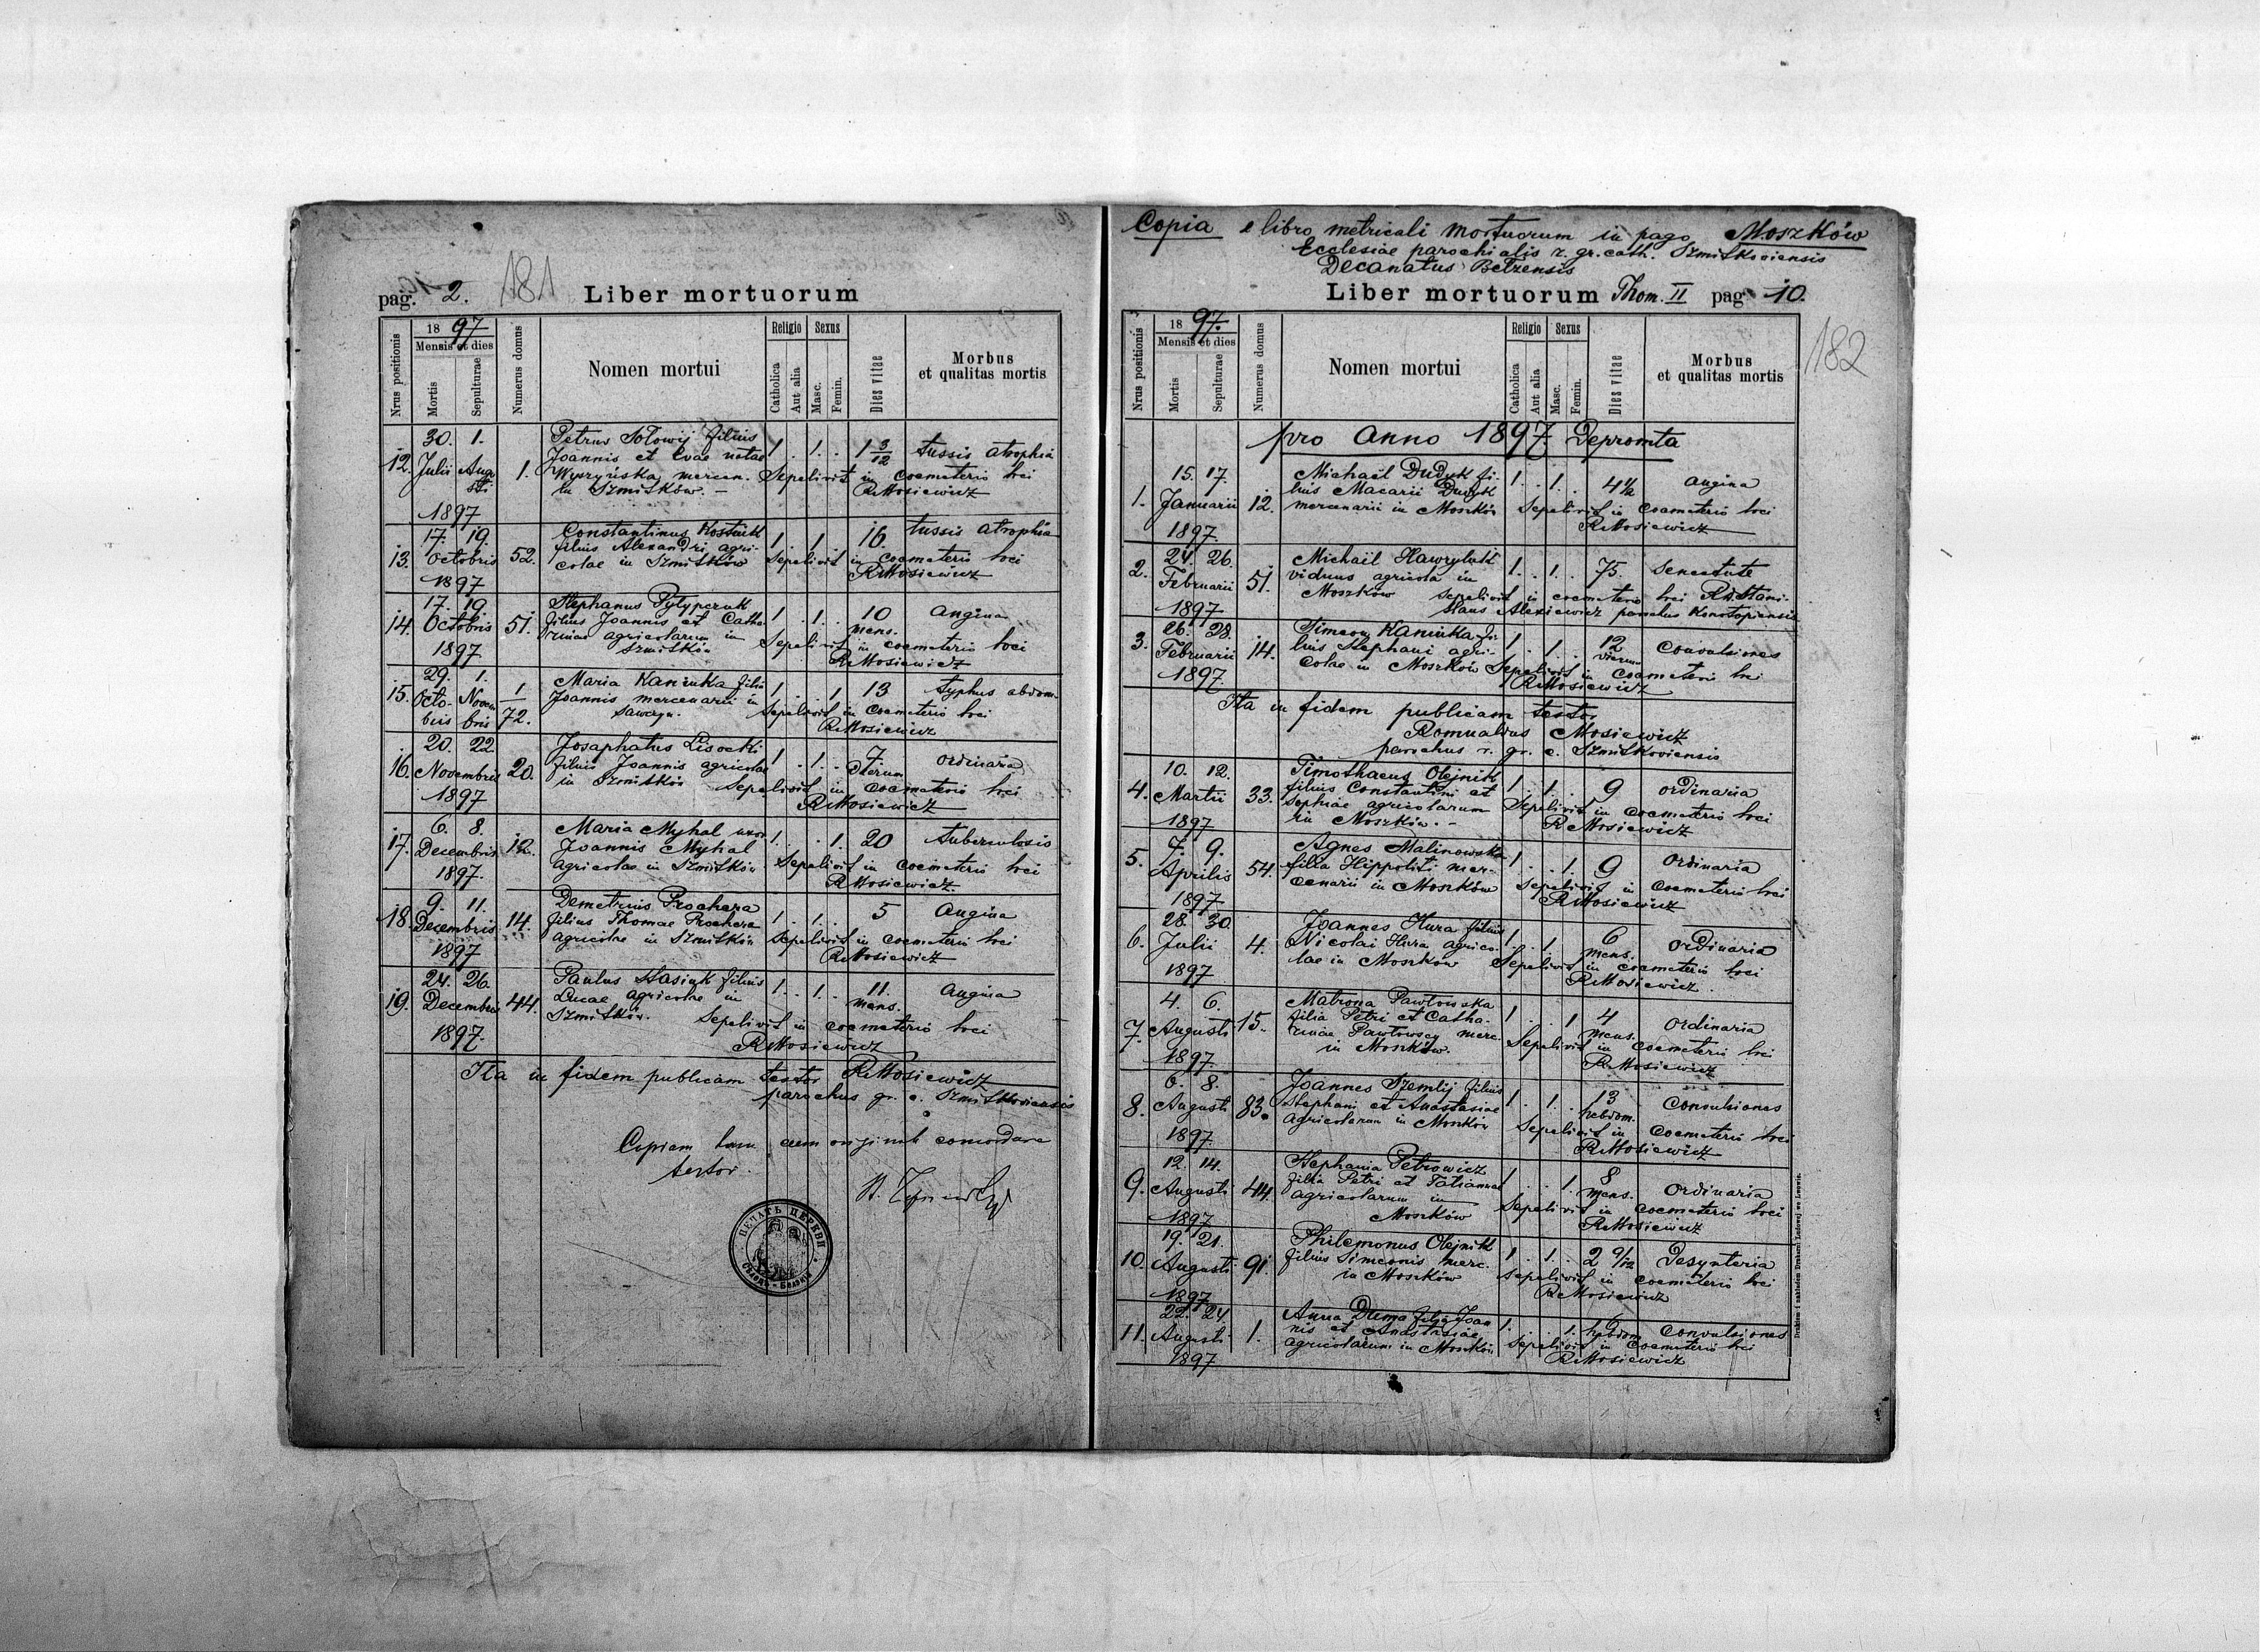 pag. 2. 181 Liber mortuorum
Nrus positionis
1897
Mensis et dies
Mortis
Sepulturae
Numerus domus
Nomen mortui
Religio
Catholica
Aut alia
Sexus
Masc.
Femin.
Dies vitae
Morbus
et qualitas mortis
12. 30. Julii 1. Augusti 1897 1.
Petrus Sołowij filius
Joannis et Evae natae
Wyszyńska mercen.
in Szmitków. –
1 . 1 . 1 3/12 tussis atrophia
Sepelivit in coemeterio loci
RMosiewicz
13. 17. 19. Octobris 1897 52.
Constantinus Kostiuk
filius Alexandri agri-
colae in Szmitków
1 . 1 . 16 tussis atrophia
Sepelivit in coemeterio loci
RMosiewicz
14. 17. 19. Octobris 1897 51.
Stephanus Pylypczuk
filius Joannis et Catha
rinae agricolarum in
Szmitków
1 . 1 . 10 mens. angina
Sepelivit in coemeterio loci
RMosiewicz
15. 29. Octobris 1. Novembris 1/72.
Maria Kaniuka filia
Joannis mercenarii in
Sawczyn.
1 . . 1 13 typhus abdom.
Sepelivit in coemeterio loci
RMosiewicz
16. 20. 22. Novembris 1897 20.
Josaphatus Lisocki
filius Joannis agricolae
in Szmitków
1 . 1 . 7 dierum ordinaria
Sepelivit in coemeterio loci
RMosiewicz
17. 6. 8. Decembris 1897. 12.
Maria Myhal uxor
Joannis Myhal
agricolae in Szmitków
1 . . 1. 20 tuberculosis
Sepelivit in coemeterio loci
RMosiewicz.
18. 9. 11. Decembris 1897 14.
Demetrius Prochera
filius Thomae Prochera
agricolae in Szmitków
1 . 1 . 5 angina
Sepelivit in coemeterio loci
RMosiewicz
19. 24. 26. Decembris 1897. 44.
Paulus Stasiuk filius
Lucae agricolae in
Szmitków.
1 . 1 . 11. mens. angina
Sepelivit in coemeterio loci
RMosiewicz
Ita in fidem publicam testor RMosiewicz
parochus gr. c. Szmitkoviensis
Copiam hanc cum originali concordare
testor.
ПЕЧАТЬ ЦЕРКВИ
Copia e libro metricali mortuorum in pago Moszków
Ecclesiae parochialis r. gr. cath. Szmitkoviensis
Decanatus Belzensis
Liber mortuorum Thom. II pag 10.
182
Nrus positionis
1897.
Mensis et dies
Mortis
Sepulturae
Numerus domus
Nomen mortui
Religio
Catholica
Aut alia
Sexus
Masc.
Femin.
Dies vitae
Morbus
et qualitas mortis
pro anno 1897 Depromta
1. 15. 17. Januarii 1897. 12.
Michaël Dudyk fi-
lius Macarii Dudyk
mercenarii in Moszków
1 . 1 . 4 1/2 angina
Sepelivit in coemeterio loci
RMosiewicz
2. 24. 26. Februarii 1897 51.
Michaël Hawryluk
viduus agricola in
Moszków
1 . 1 . 75. senectute
sepelivit in coemeterio loci Rd. Stani-
slaus Alexiewicz parochus Konotopiensis
3. 26. 28. Februarii 1897. 14.
Simeon Kaniuka fi-
lius Stephani agri-
colae in Moszków
1 . 1 . 12 dierum convulsiones
Sepelivit in coemeterio loci
RMosiewicz
Ita in fidem publicam testor
Romualdus Mosiewicz
parochus r. gr. c. Szmitkoviensis
4. 10. 12. Martii 1897 33.
Timothaeus Olejnik
filius Constantini et
Sophiae agricolarum
in Moszków. –
1 . 1 . 9 ordinaria
Sepelivit in coemeterio loci
RMosiewicz
5. 7. 9. Aprilis 1897 54.
Agnes Malinowska
filia Hippoliti mer-
cenarii in Moszków
1 . . 1. 9 ordinaria
Sepelivit in coemeterio loci
RMosiewicz
6. 28. 30. Julii 1897 4.
Joannes Hura filius
Nicolai Hura agrico-
lae in Moszków
1 . 1 . 6 mens. ordinaria
Sepelivit in coemeterio loci
RMosiewicz.
7. 4. 6. Augusti 1897 15.
Matrona Pawłowska
filia Petri et Catha-
rinae Pawłowscy merc.
in Moszków.
1 . . 1 4 mens. ordinaria
Sepelivit in coemeterio loci
RMosiewicz
8. 6. 8. Augusti 1897. 83.
Joannes Szemlij filius
Stephani et Anastasiae
agricolarum in Moszków
1 . 1 . 13 hebdom. convulsiones
Sepelivit in coemeterio loci
RMosiewicz
9. 12. 14. Augusti 1897 44.
Stephania Petrowicz
filia Petri et Tatiannae
agricolarum in
Moszków
1 . . 1. 8 mens. ordinaria
Sepelivit in coemeterio loci
RMosiewicz
10. 19. 21. Augusti 1897 91.
Philemonus Olejnik
filius Simeonis merc.
in Moszków
1 . 1 . 2 9/12 Desynteria
Sepelivit in coemeterio loci
RMosiewicz
11. 22. 24. Augusti 1897 1.
Anna Duma filia Joan
nis et Anastasiae
agricolarum in Moszków
1 . . 1. 6 hebdom. convulsiones
Sepelivit in coemeterio loci
RMosiewicz
Drukiem i nakładem Drukarni Ludowej we Lwowie.